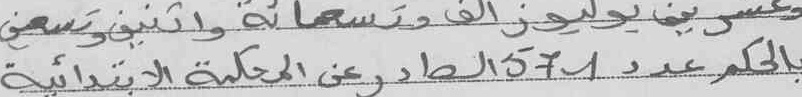 وعشرين يوليوز ألف وتسعمائة واثنين وتسعين
بالحكم عدد 571 الصادر عن المحكمة الابتدائية